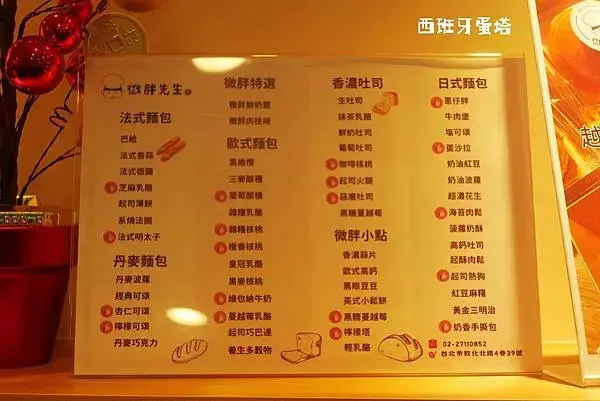 西班牙蛋塔
微胖先生
法式麵包
巴給
法式香蒜
法式德腸
芝麻乳酪
起司薄餅
系燒法國
法式明太子
丹麥麵包
丹麥波蘿
經典可頌
杏仁可頌
檸檬可頌
丹麥巧克力
微胖特選
微胖鮮奶露
微胖肉枝捲
歐式麵包
黑橄欖
三麥酸種
葡萄酸種
雜糧乳酪
雜糧核桃
橙香核桃
皇冠乳酪
黑麥核桃
維也納牛奶
蔓越莓乳酪
起司巧巴達
養生多穀物
香濃吐司
生吐司
抹茶乳酪
鮮奶吐司
葡萄吐司
咖啡核桃
起司火腿
惡魔吐司
黑糖蔓越莓
微胖小點
香濃蒜片
歐式高鈣
黑眼豆豆
英式小鬆餅
黑糖蔓越莓
檸檬塔
輕乳酪
日式麵包
蔥仔胖
牛肉堡
塩可頌
蛋沙拉
奶油紅豆
奶油波蘿
超濃花生
海苔肉鬆
菠蘿奶酥
高鈣吐司
起酥肉鬆
起司熱狗
紅豆麻糬
黃金三明治
奶香手撕包
02-27110852
台北市敦化北路4巷39號
越